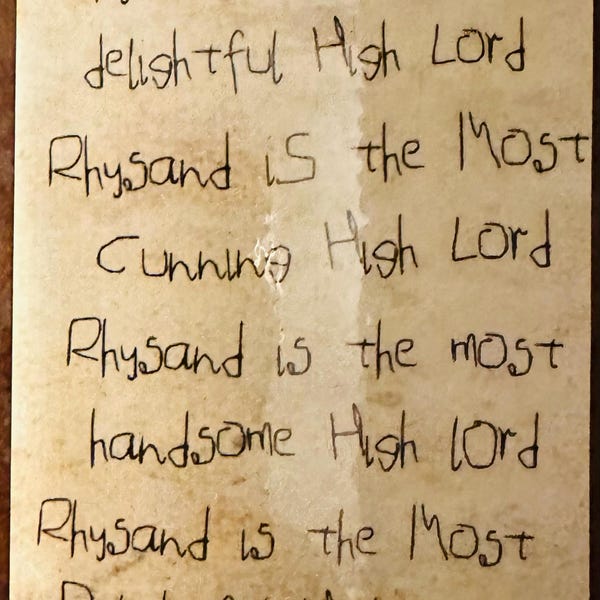 delightful High Lord
Rhysand is the Most
Cunning High Lord
Rhysand is the most
handsome High lord
Rhysand is the Most